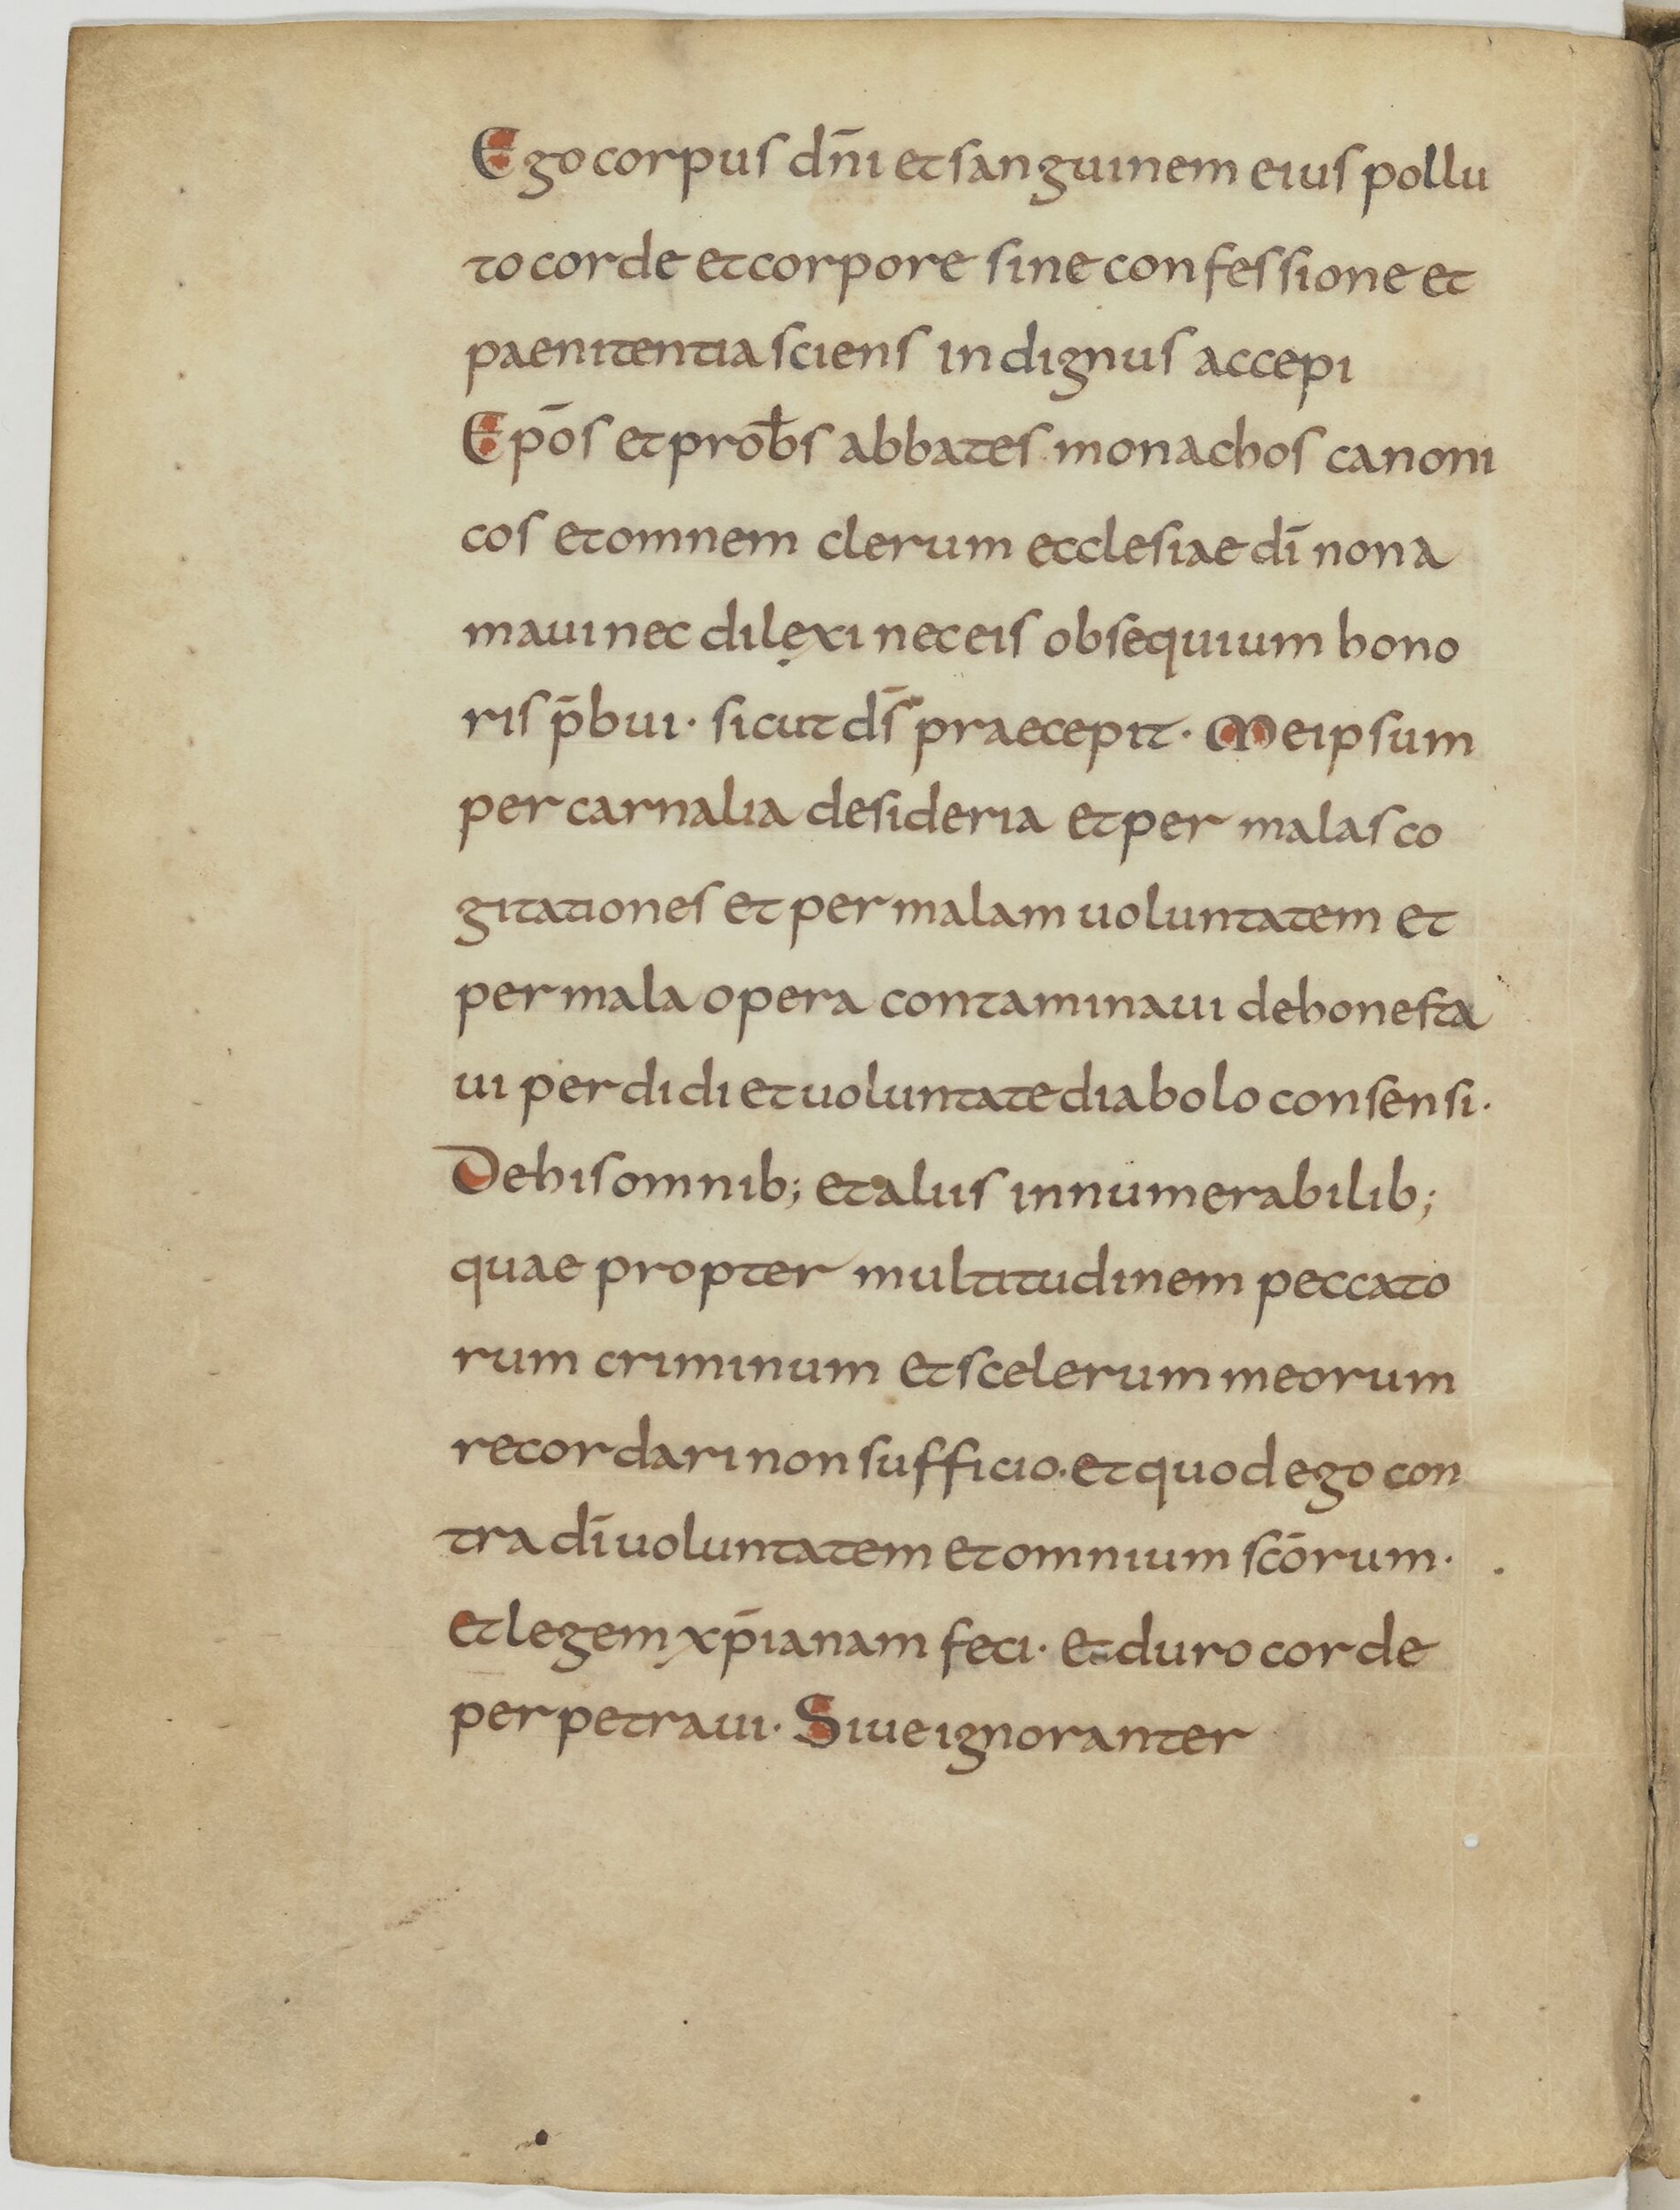 Ego corpus dn̄i et sanguinem eius pollu
to corde et corpore sine confessione et
paenitentia sciens indignus accepi
Ep̄os et prōbs abbates monachos canoni
cos et omnem clerum ecclesiae dī non a
maui nec dilexi nec eis obsequium hono
ris p̄bui · sicut ds̄ praecepit · Me ipsum
per carnalia desideria et per malas co
gitationes et per malam uoluntatem et
per mala opera contaminaui dehonesta
ui perdidi et uoluntate diabolo consensi ·
De his omnib; et aliis innumerabilib;
quae propter multitudinem peccato
rum criminum et scelerum meorum
recordari non sufficio · et quod ego con
tra dī uoluntatem et omnium scōrum ·
et legem xp̄ianam feci · et duro corde
perpetraui · Siue ignoranter